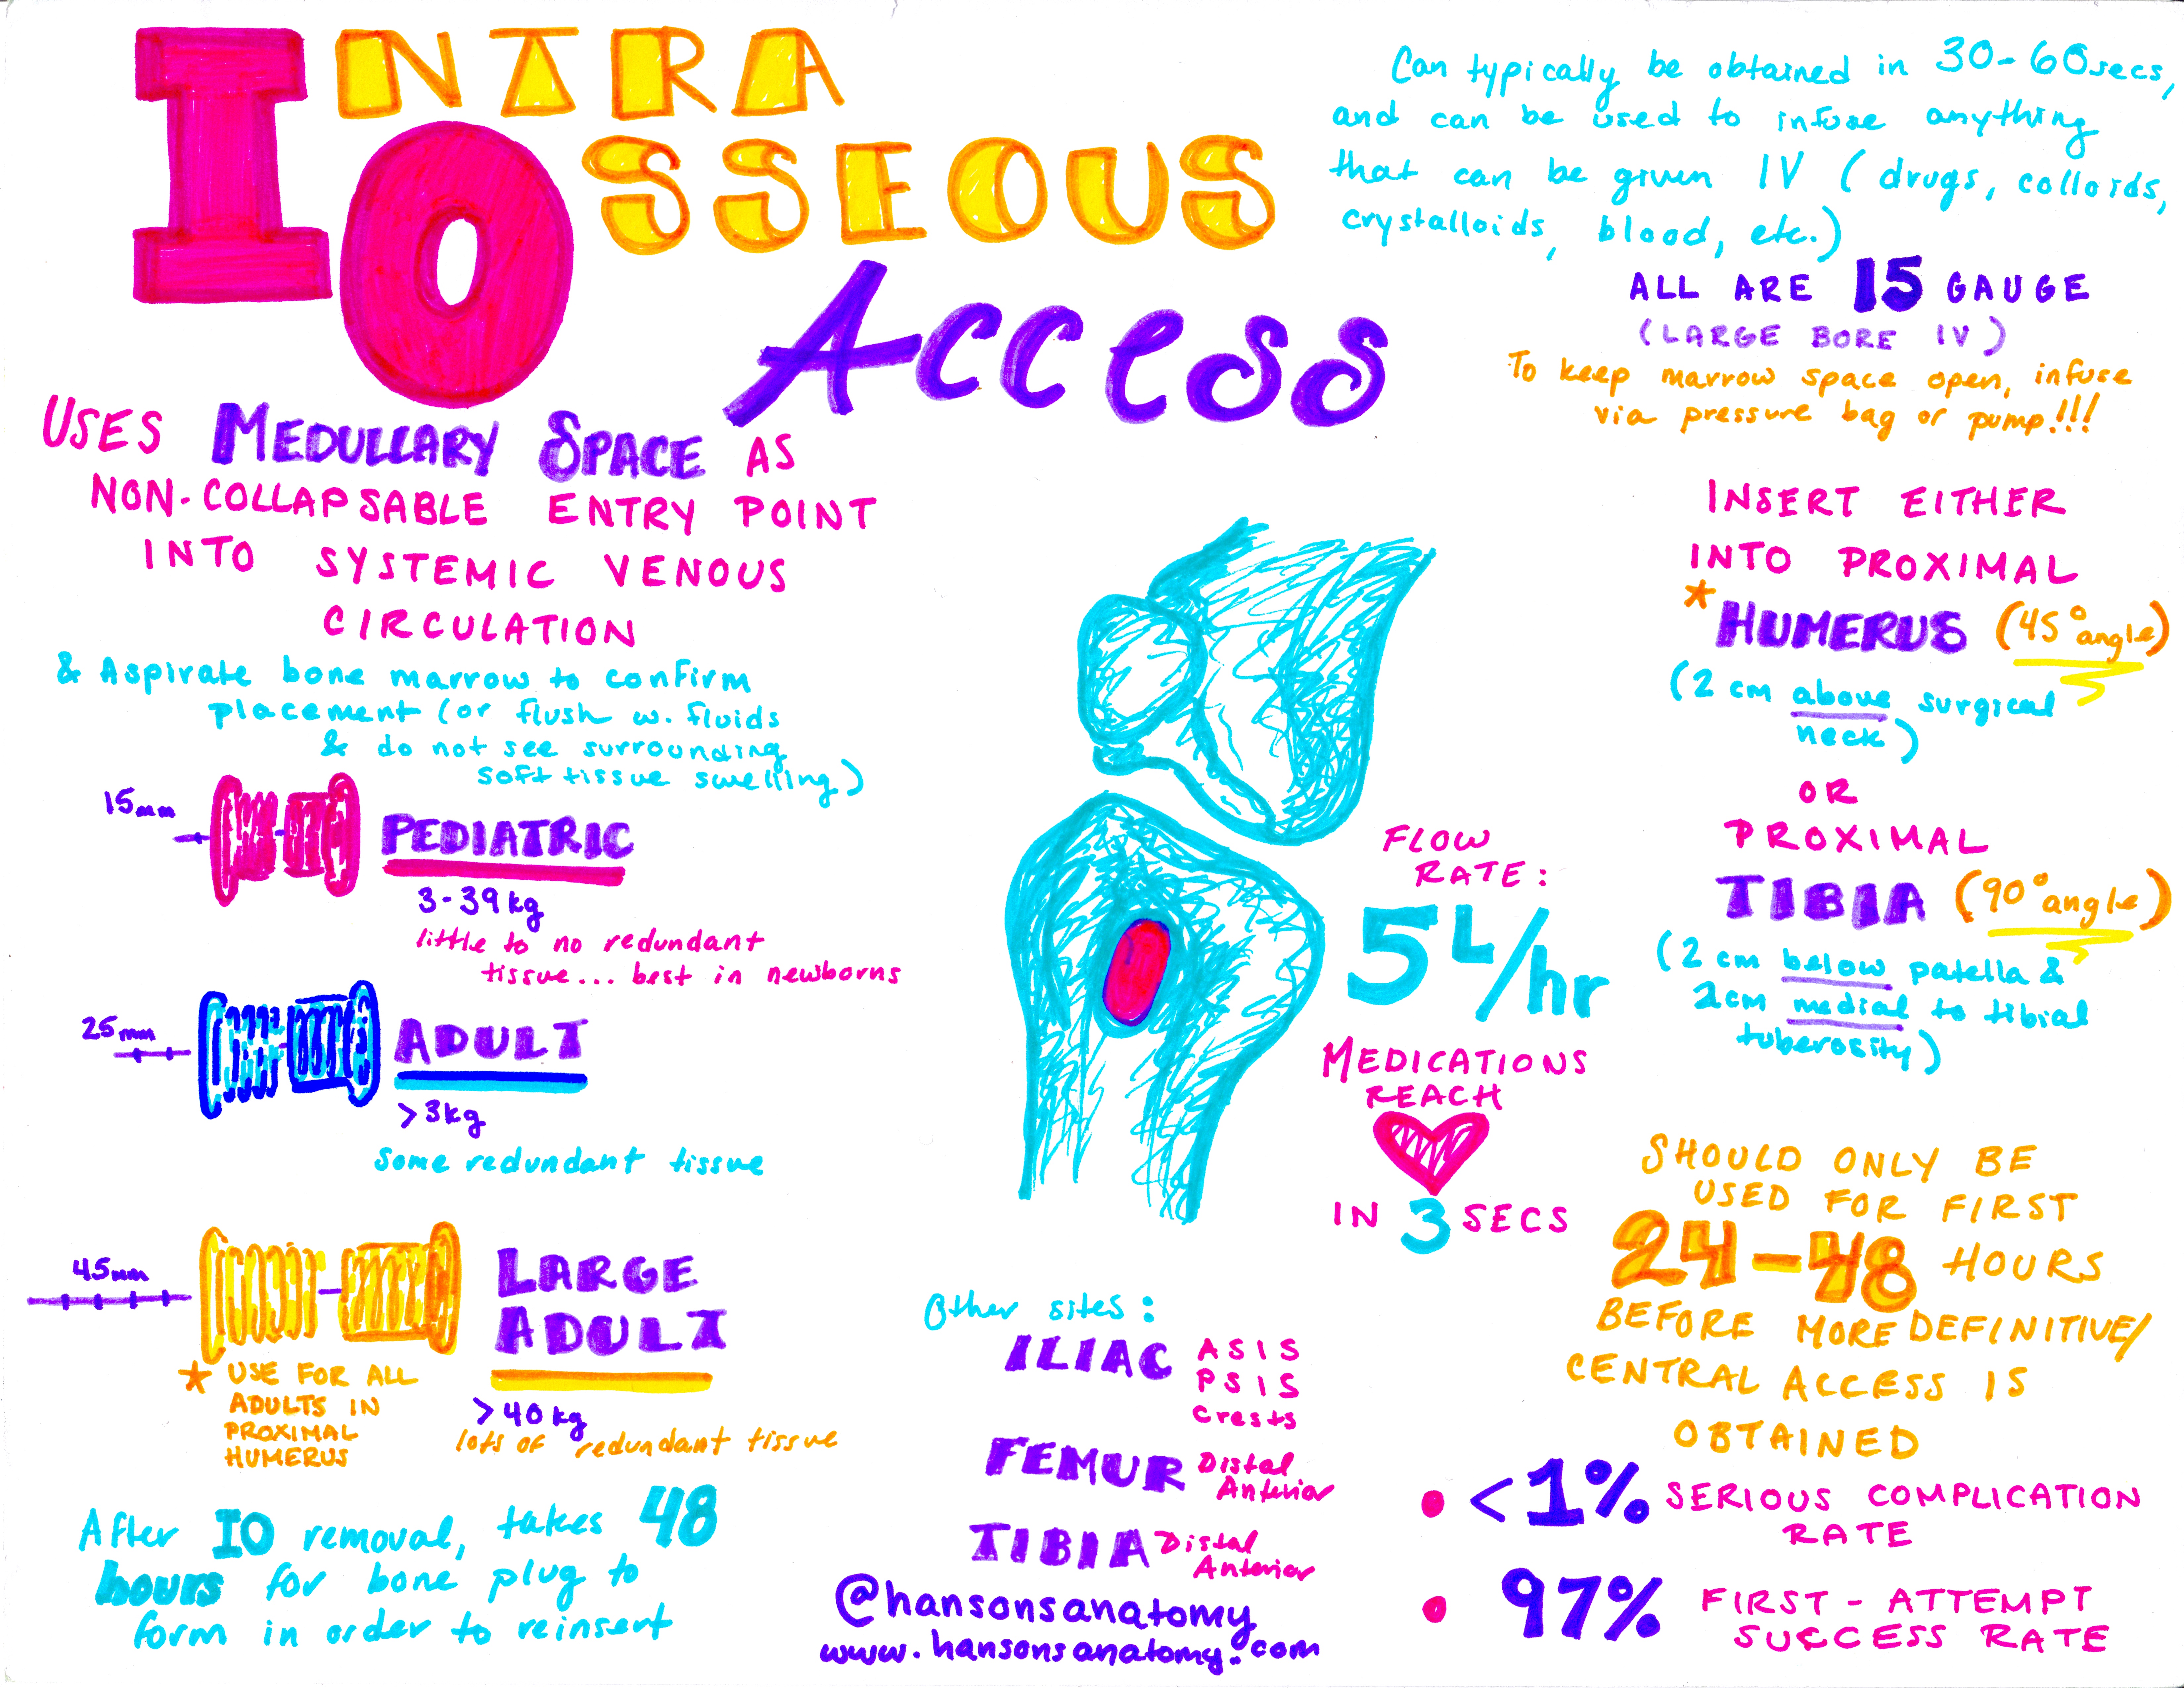 INTRA
OSSEOUS
ACCESS
Can typically be obtained in 30-60secs,
and can be used to infuse anything
that can be given IV (drugs, colloids,
crystalloids, blood, etc.)
ALL ARE 15 GAUGE
(LARGE BORE IV)
To keep marrow space open, infuse
via pressure bag or pump!!!
USES MEDULLARY SPACE AS
NON-COLLAPSABLE ENTRY POINT
INTO SYSTEMIC VENOUS
CIRCULATION
& Aspirate bone marrow to confirm
placement (or flush w. fluids
& do not see surrounding
soft tissue swelling)
15mm
PEDIATRIC
3-39kg
little to no redundant
tissue... best in newborns
25mm
ADULT
>3kg
some redundant tissue
45mm
LARGE
ADULT
>40kg
lots of redundant tissue
* USE FOR ALL
ADULTS IN
PROXIMAL
HUMERUS
After IO removal, takes 48
hours for bone plug to
form in order to reinsert
FLOW
RATE:
5L/hr
MEDICATIONS
REACH
IN 3 SECS
Other sites:
ILIAC ASIS
PSIS
Crests
FEMUR Distal
Anterior
TIBIA Distal
Anterior
@hansonsanatomy
www.hansonsanatomy.com
INSERT EITHER
INTO PROXIMAL
* HUMERUS (45° angle)
(2 cm above surgical
neck)
OR
PROXIMAL
TIBIA (90° angle)
(2 cm below patella &
2cm medial to tibial
tuberosity)
SHOULD ONLY BE
USED FOR FIRST
24-48 HOURS
BEFORE MORE DEFINITIVE/
CENTRAL ACCESS IS
OBTAINED
• <1% SERIOUS COMPLICATION
RATE
• 97% FIRST-ATTEMPT
SUCCESS RATE